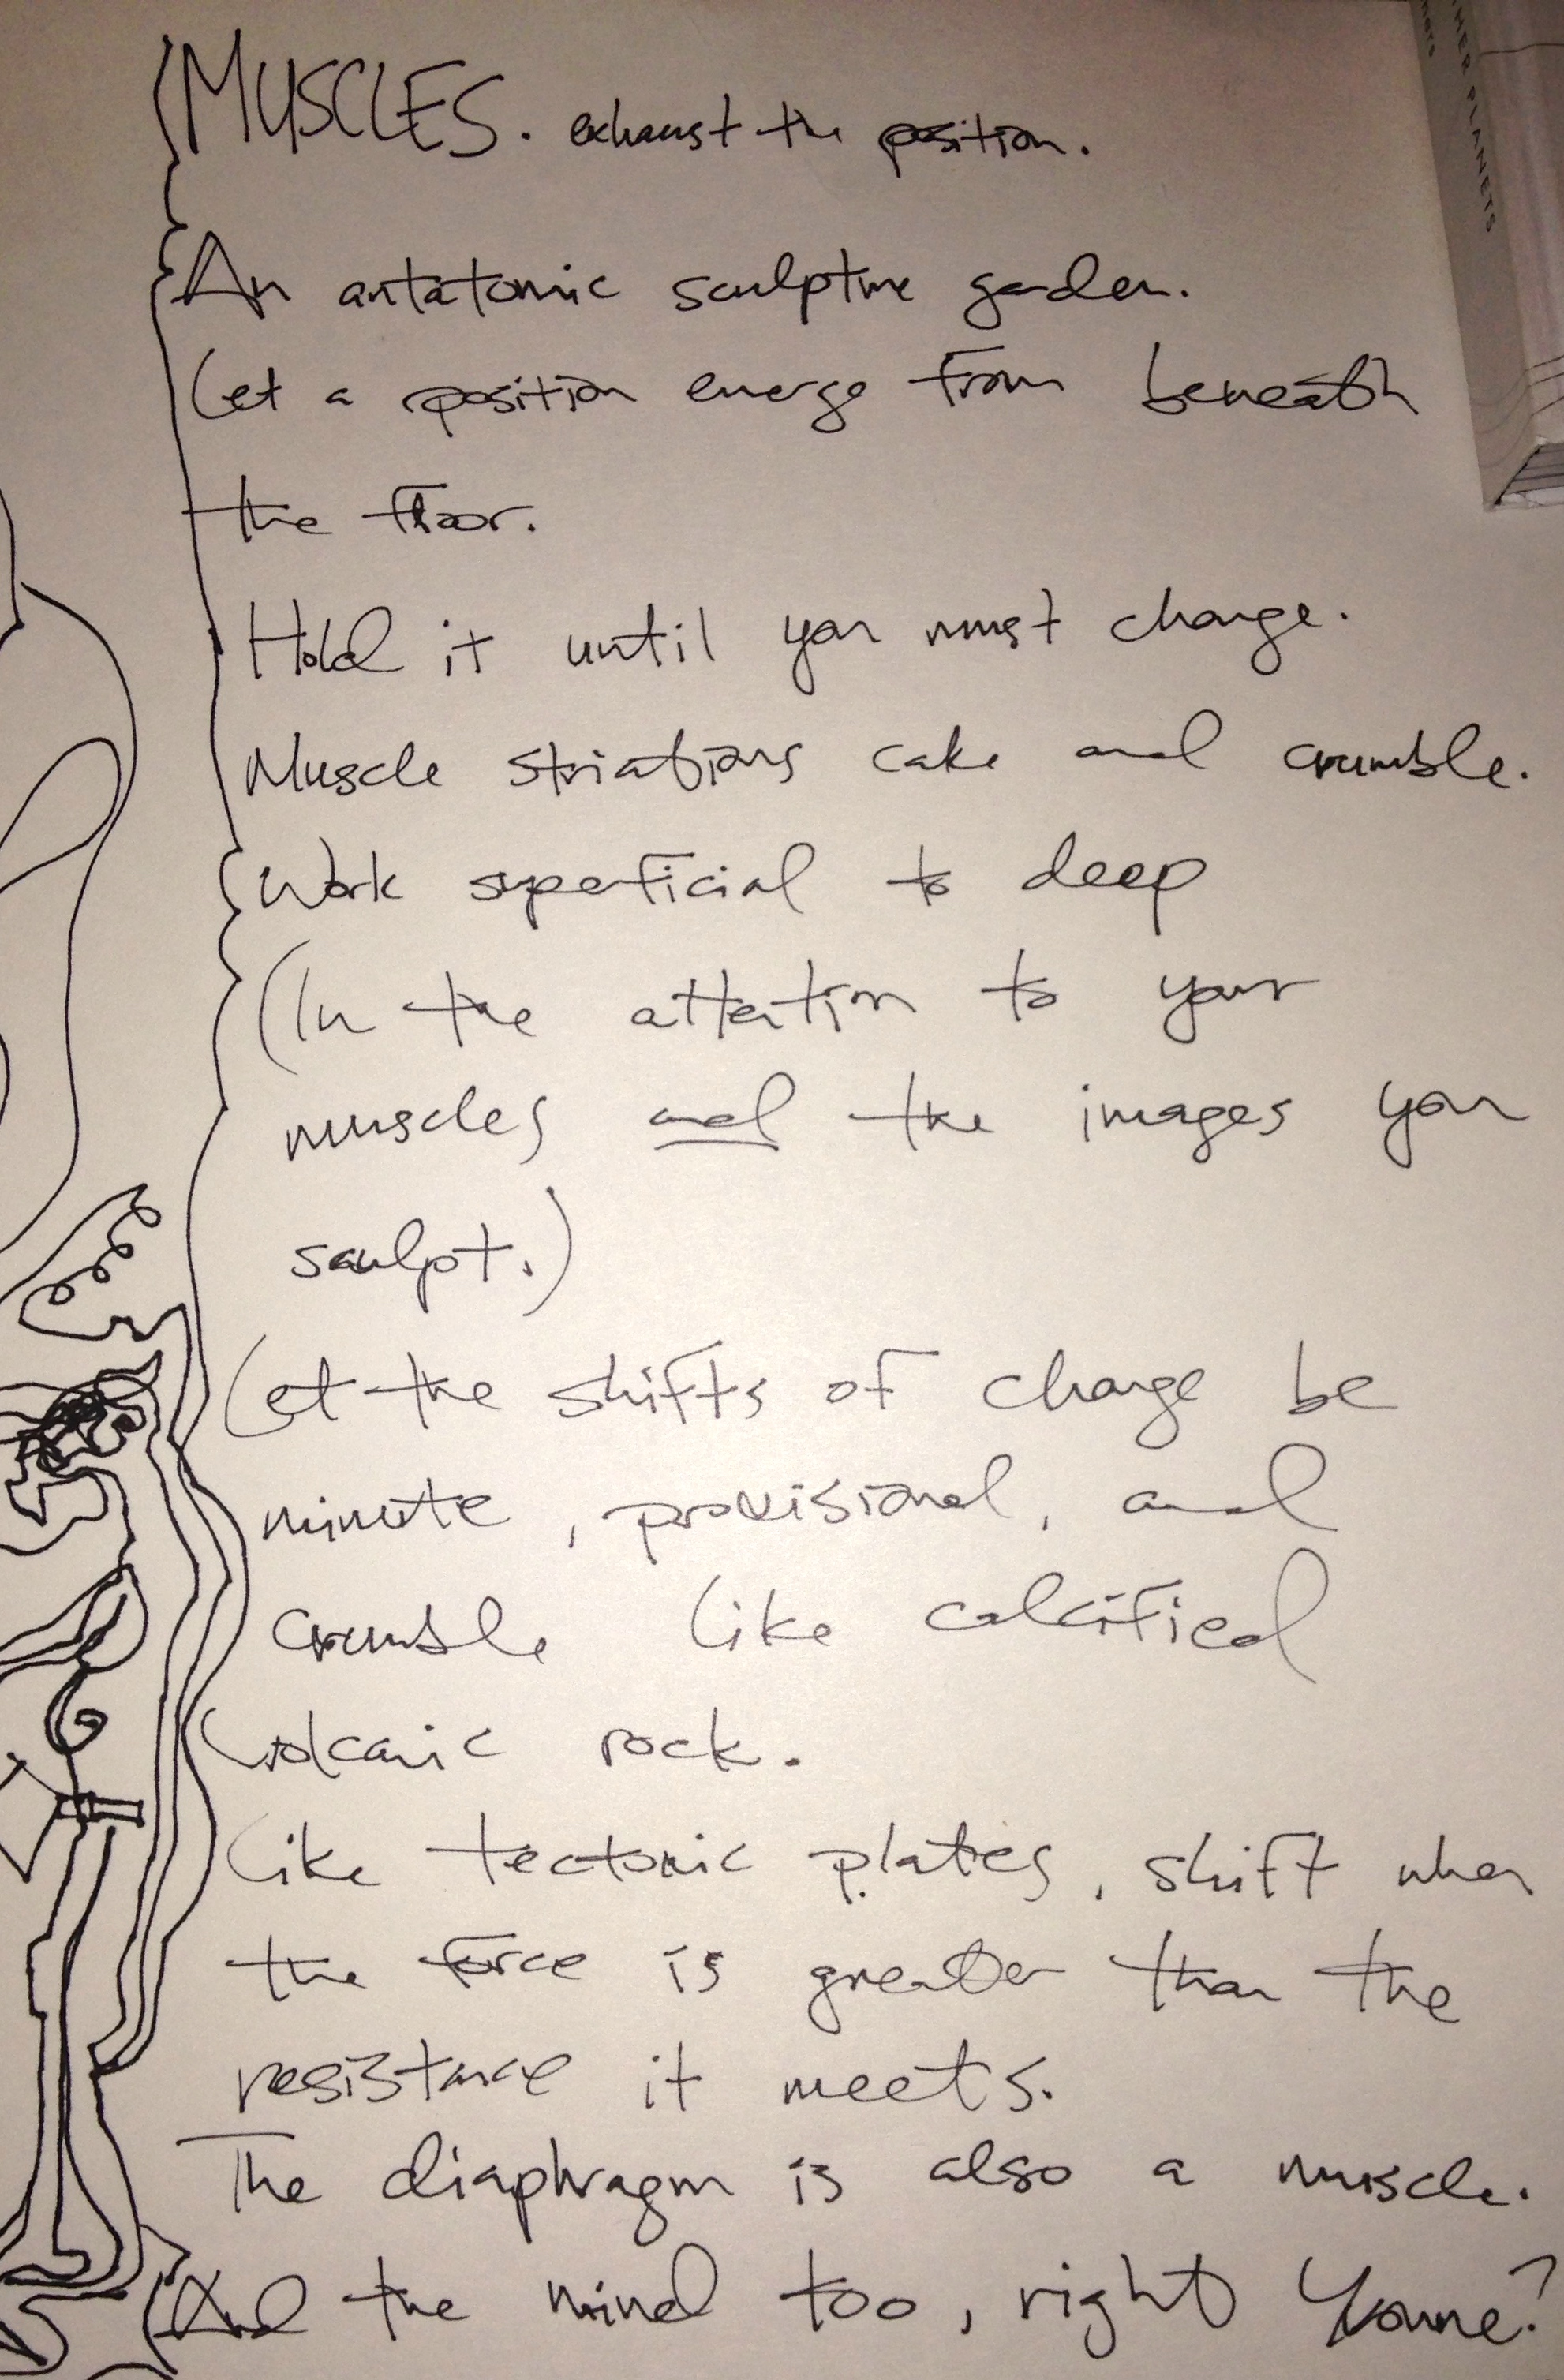 MUSCLES. exhaust the position.
An antatomic sculpture garden.
Let a position emerge from beneath
the floor.
Hold it until you must change.
Muscle striations cake and crumble.
Work superficial to deep
(In the attention to your
muscles and the images you
sculpt.)
Let the shifts of change be
minute, provisional, and
crumble like calcified
volcanic rock.
Like tectonic plates, shift when
the force is greater than the
resistance it meets.
The diaphragm is also a muscle.
And the mind too, right Yvonne?
HER PLANETS